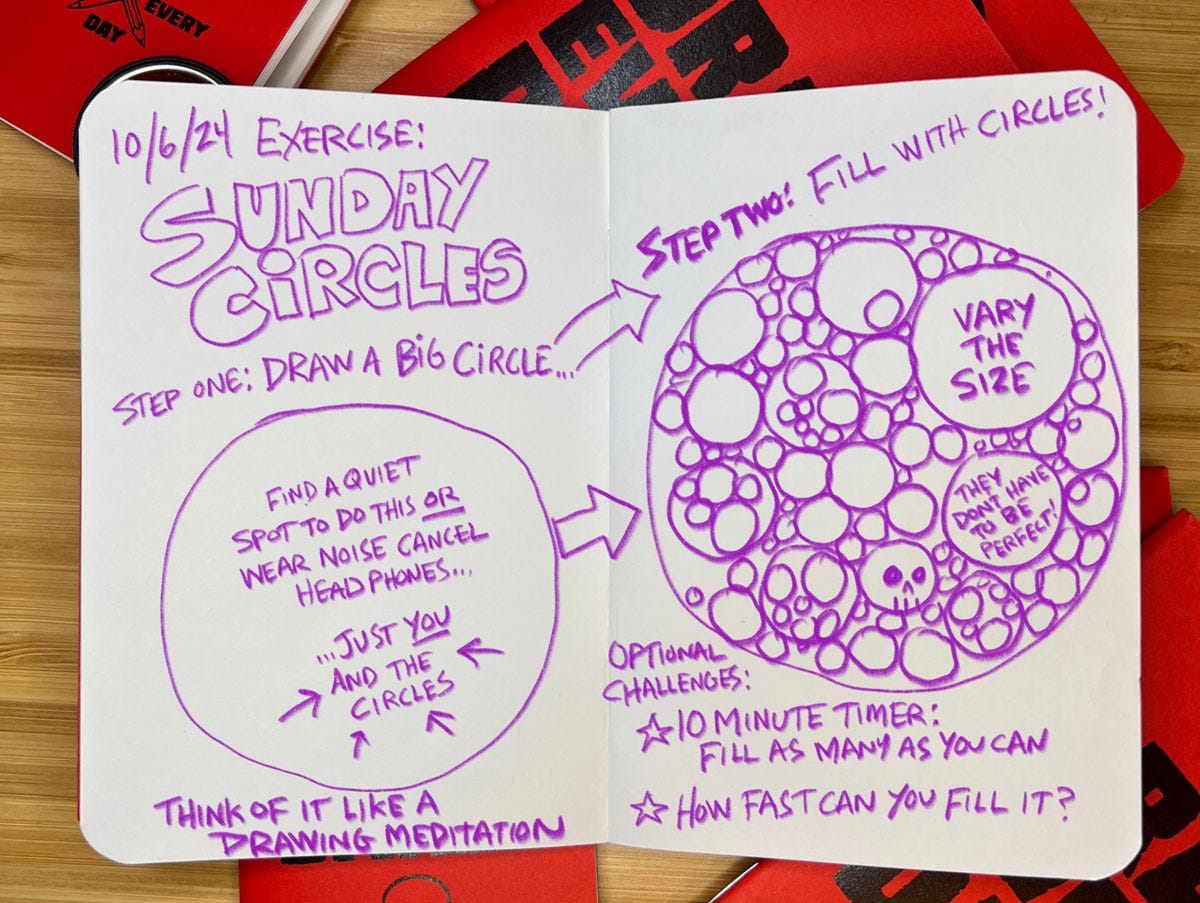 DAY EVERY
10/6/24 EXERCISE:
SUNDAY
CIRCLES
STEP ONE: DRAW A BIG CIRCLE...
FIND A QUIET
SPOT TO DO THIS OR
WEAR NOISE CANCEL
HEADPHONES...
...JUST YOU
AND THE
CIRCLES
THINK OF IT LIKE A
DRAWING MEDITATION
STEP TWO: FILL WITH CIRCLES!
VARY
THE
SIZE
THEY
DONT HAVE
TO BE
PERFECT!
OPTIONAL
CHALLENGES:
☆ 10 MINUTE TIMER:
FILL AS MANY AS YOU CAN
☆ HOW FAST CAN YOU FILL IT?